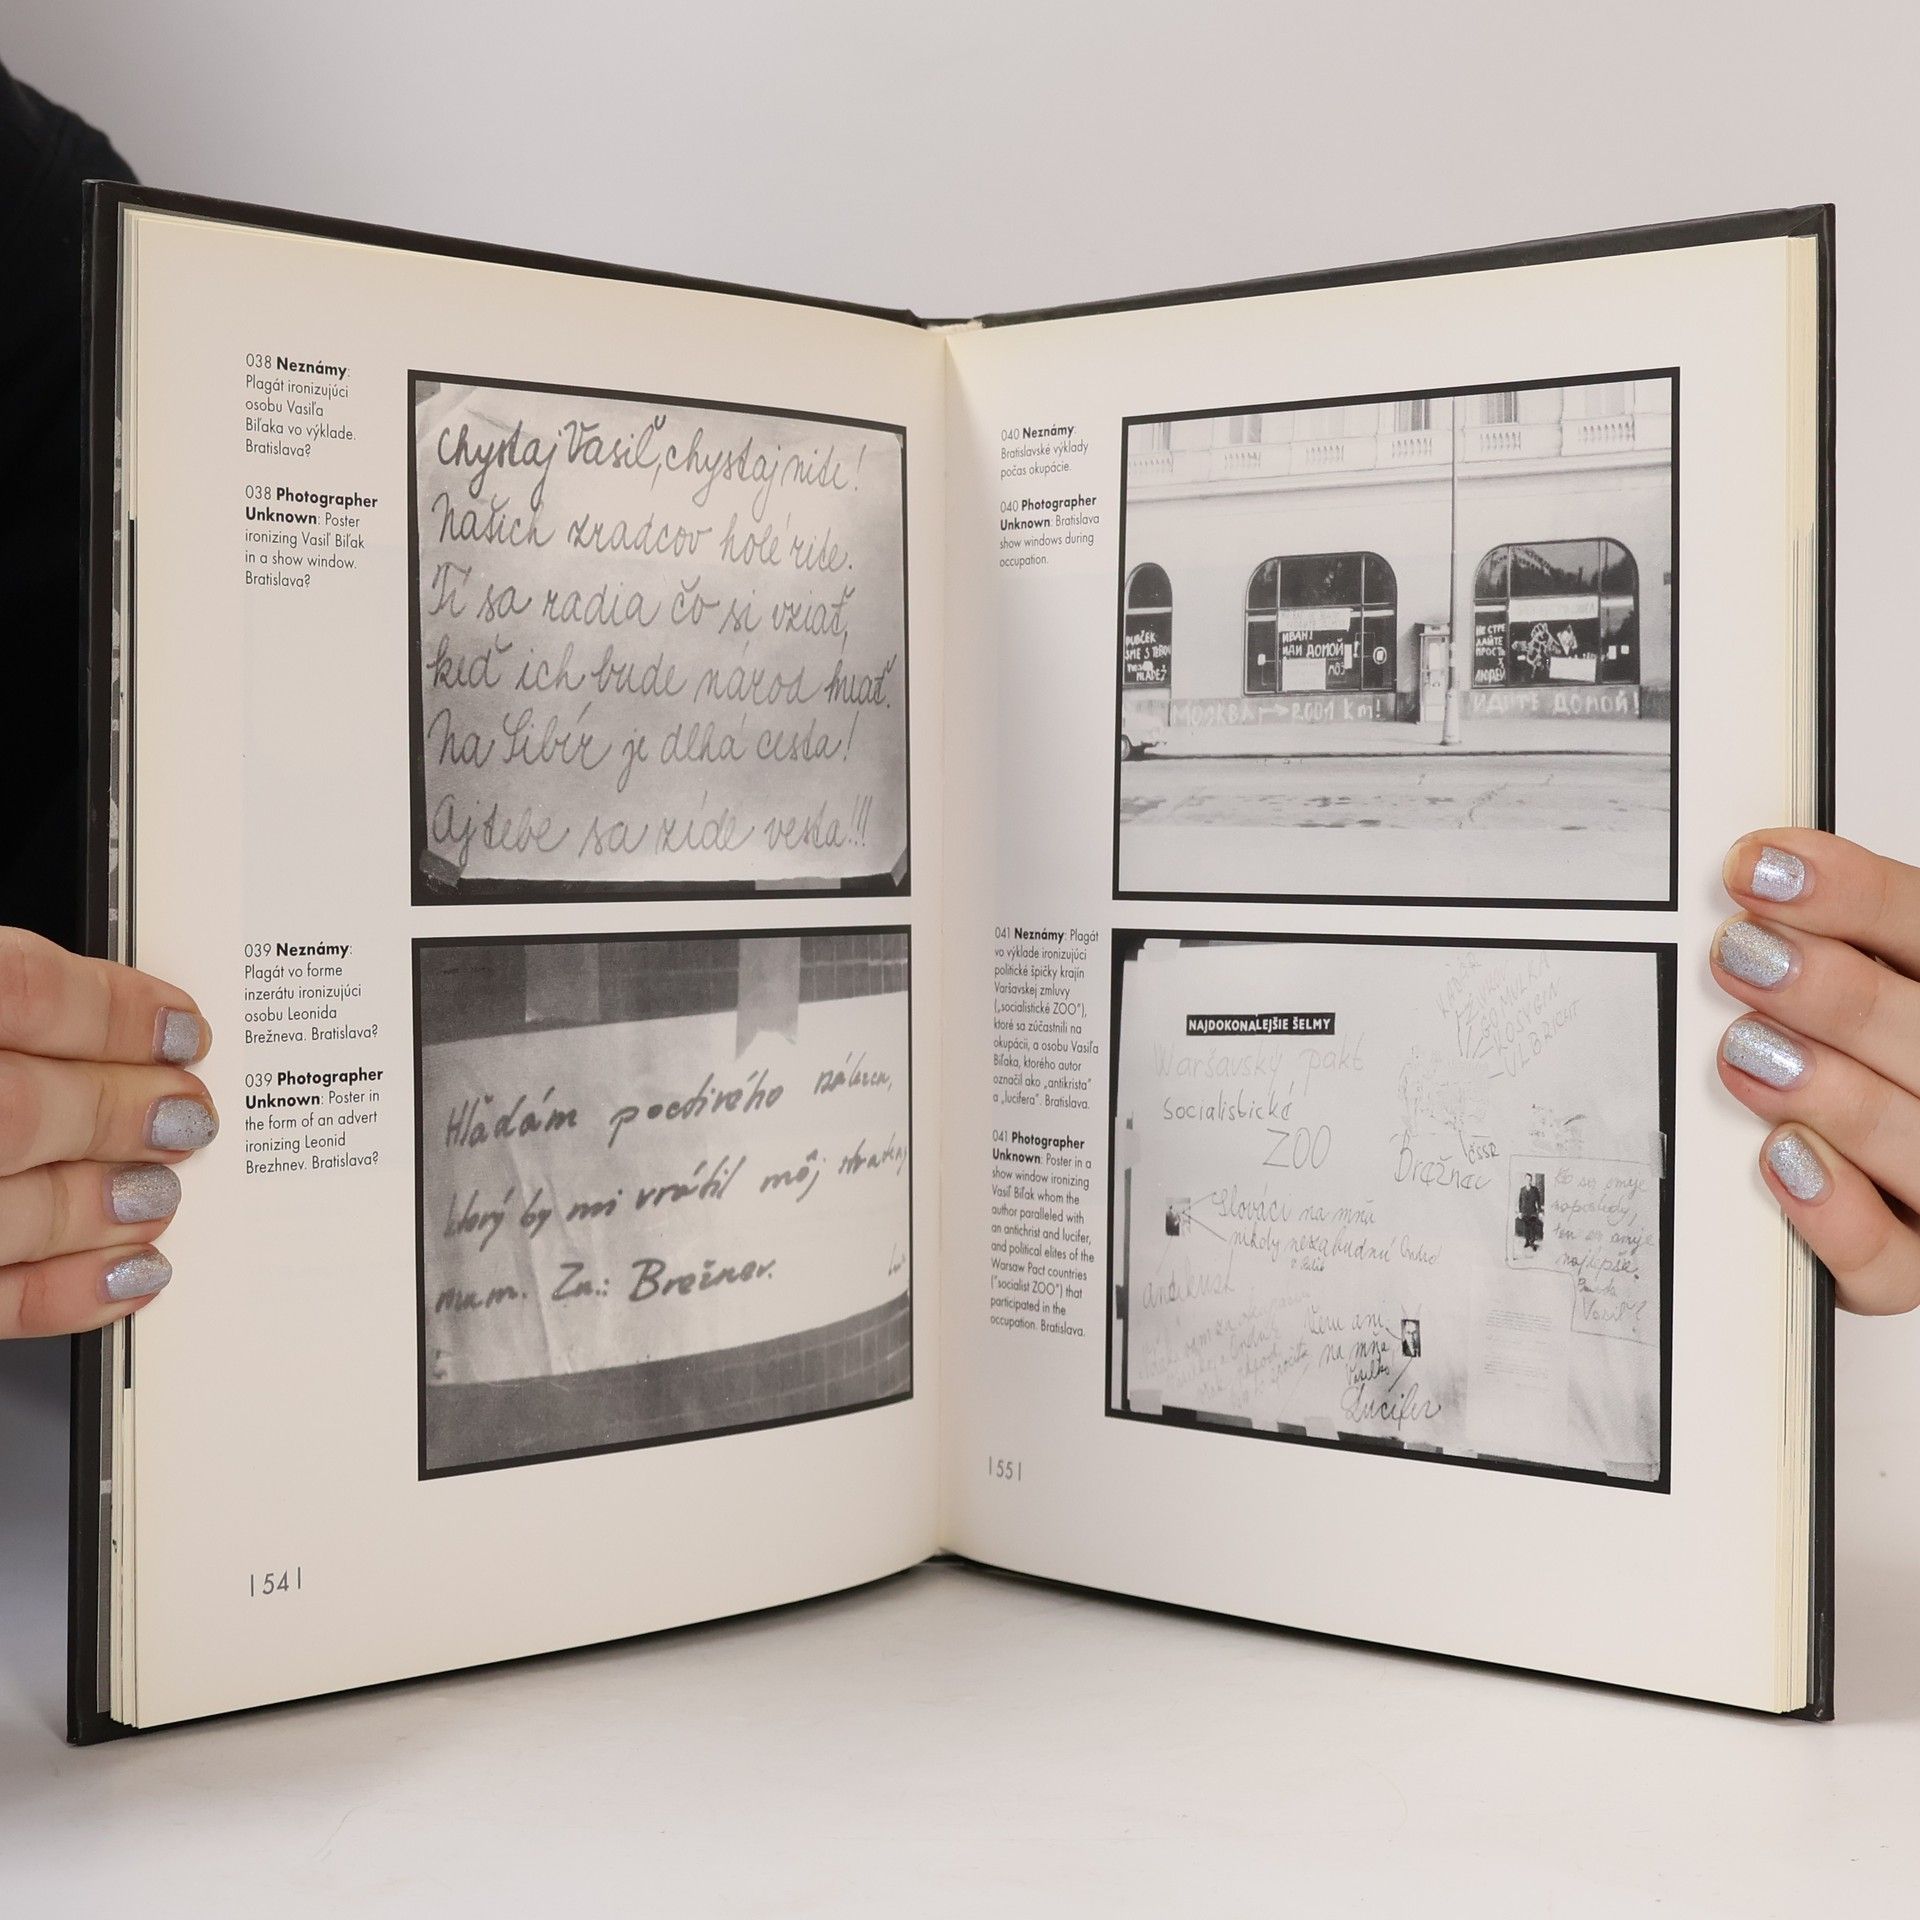 038 Neznámy:
Plagát ironizujúci
osobu Vasiľa
Biľaka vo výklade.
Bratislava?
038 Photographer
Unknown: Poster
ironizing Vasiľ Biľak
in a show window.
Bratislava?
Chystaj Vasiľ, chystaj rite!
Našich zradcov holé rite.
Tí sa radia čo si vziať,
keď ich bude národ hnať.
Na Sibír je dlhá cesta!
Aj tebe sa zíde vesta!!!
039 Neznámy:
Plagát vo forme
inzerátu ironizujúci
osobu Leonida
Brežneva. Bratislava?
039 Photographer
Unknown: Poster in
the form of an advert
ironizing Leonid
Brezhnev. Bratislava?
Hľadám poctivého nálezcu,
ktorý by mi vrátil môj stratený
mum. Zn.: Brežnev.
|54|
040 Neznámy:
Bratislavské výklady
počas okupácie.
040 Photographer
Unknown: Bratislava
show windows during
occupation.
DUBČEK
SME S TEBOU
MLÁDEŽ
ИВАН!
ИДИ ДОМОЙ!
НЕ СТРЕ
ЛЯЙТЕ
ПРОСТЬ
Х
ЛЮДЕЙ
МОСКВА → 2001 km!
ИДИТЕ ДОМОЙ!
041 Neznámy: Plagát
vo výklade ironizujúci
politické špičky krajín
Varšavskej zmluvy
(„socialistické ZOO“),
ktoré sa zúčastnili na
okupácii, a osobu Vasiľa
Biľaka, ktorého autor
označil ako „antikrista“
a „lucifera“. Bratislava.
041 Photographer
Unknown: Poster in a
show window ironizing
Vasiľ Biľak whom the
author paralleled with
an antichrist and lucifer,
and political elites of the
Warsaw Pact countries
("socialist ZOO") that
participated in the
occupation. Bratislava.
NAJDOKONALEJŠIE ŠELMY
Waršavský pakt
socialistické
ZOO
KADAR
ŽIVKOV
GOMULKA
KOSYGIN
ULBRICHT
ČSSR
Brežnev
Slováci na mňa
nikdy nezabudnú
antikrist
Ko sa smeje
naposledy,
ten sa smeje
najlepšie.
Vasiľ?
Neni ani
na mňa
Vasilko
Lucifer
|55|